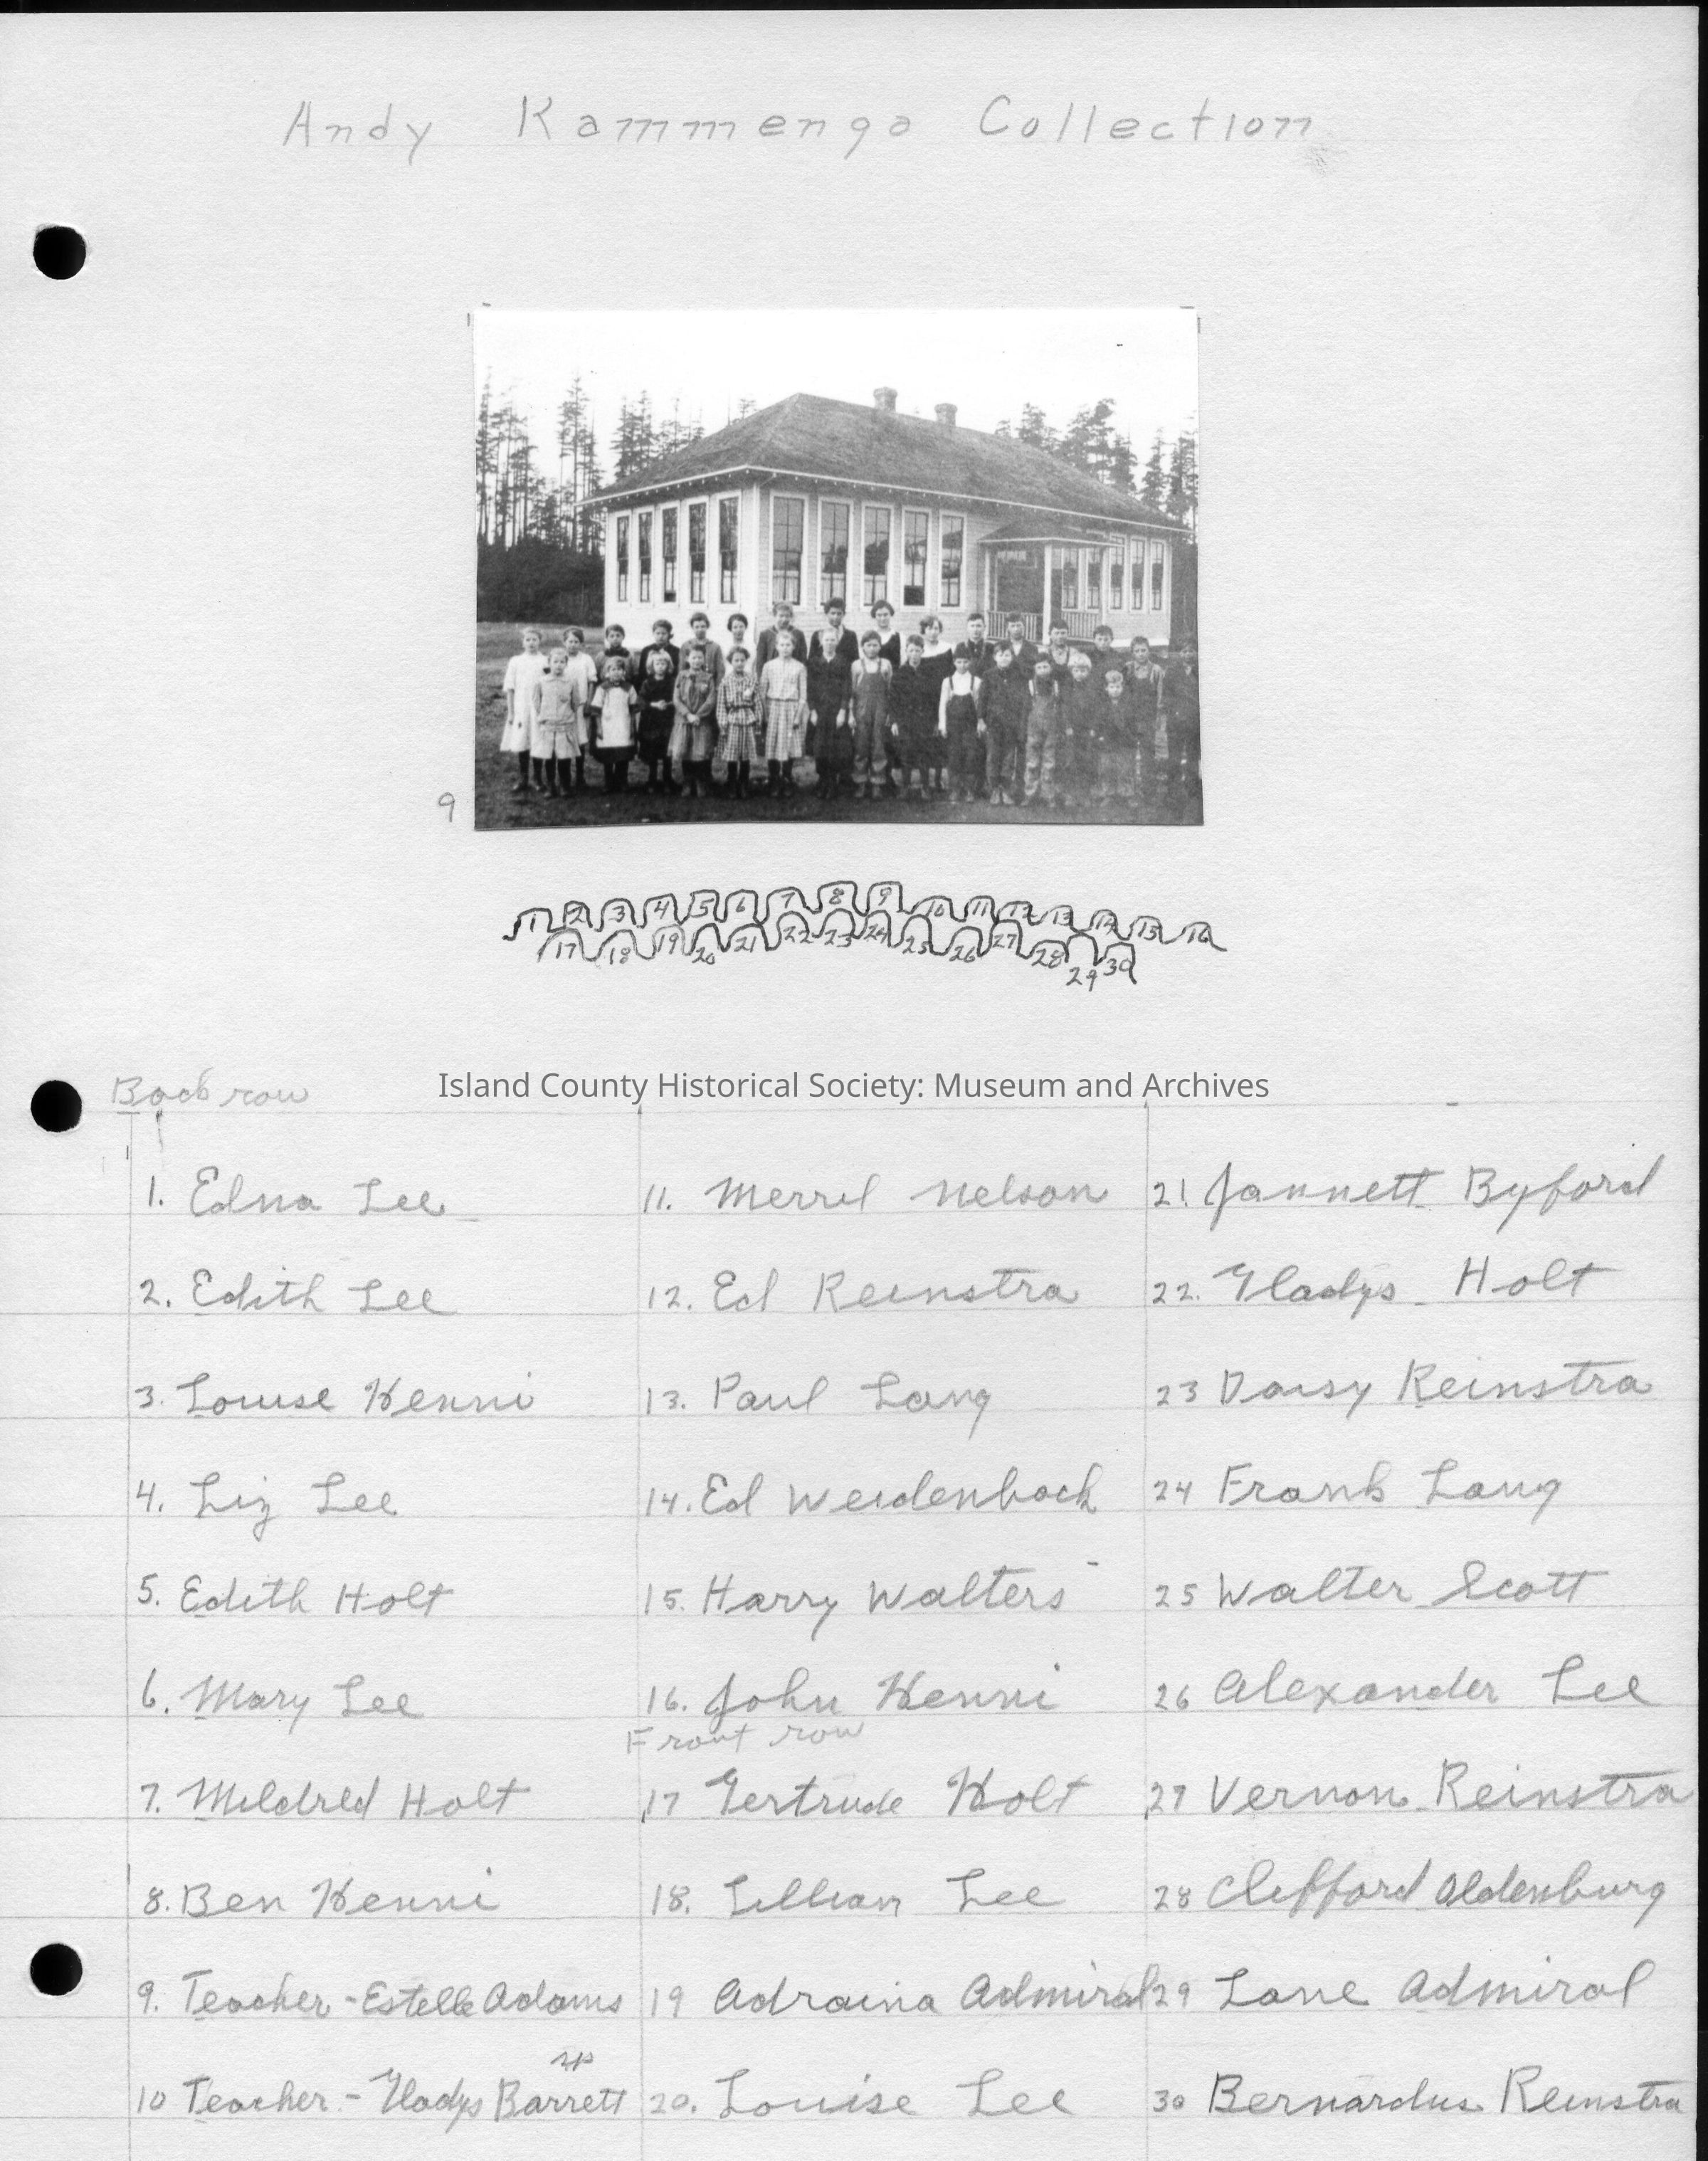 Andy Kammenga Collection
9
1 2 3 4 5 6 7 8 9 10 11 12 13 14 15 16
17 18 19 20 21 22 23 24 25 26 27 28 29 30
Island County Historical Society: Museum and Archives
Back row
1. Edna Lee
2. Edith Lee
3. Louise Henni
4. Liz Lee
5. Edith Holt
6. Mary Lee
7. Mildred Holt
8. Ben Henni
9. Teacher - Estelle Adams
sp
10 Teacher - Gladys Barrett
11. Merril Nelson
12. Ed Reinstra
13. Paul Lang
14. Ed Weidenbach
15. Harry Walters
16. John Henni
Front row
17 Gertrude Holt
18. Lillian Lee
19 Adraina Admiral
20. Louise Lee
21 Jannett Byford
22. Gladys Holt
23 Daisy Reinstra
24 Frank Lang
25 Walter Scott
26 Alexander Lee
27 Vernon Reinstra
28 Clifford Oldenburg
29 Lane Admiral
30 Bernardus Reinstra